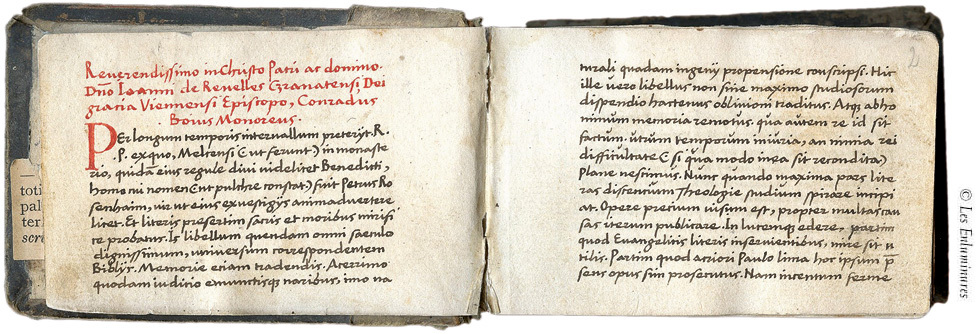 Reverendissimo in Christo Patri ac domino.
Dño Ioanni de Revelles Granatensi Dei
gracia Viennensi Episcopo, Conradus
Boius Monoreus.
PEr longum temporis intervallum preterijt. R.
.P. exquo, Melcensi (ut ferunt) in monaste
rio, quidã eius regule divi videlicet Benedicti,
homo nu nomen (ut pulchre constat) fuit Petrus Ro
senhaim, vir ut eius ex vestigijs animadvertere
licet. Et literis presertim sacris et moribus mirifi
ce probatus. Is libellum quendam omni saeculo
dignissimum, universum correspondentem
Biblijs. Memorie etiam tradendis. Acerrimo
quodam iudicio emunctisque naribus, imo na
2
turali quadam ingenij propensione conscripsi. Hic
ille vero libellus non sine maximo studiosorum
dispendio hactenus oblivioni traditus. Atque ab ho
minum memoria remotus. qua autem re id sit
factum. utrum temporum iniuria, an nimia rei
difficultate (E si qua modo in ea sit recondita)
Plane nescimus. Nunc quando maxima pars lite
ras discentium Theologie studium spirare incipi
at. Opere precium visum est, propter multas cau
sas iterum publicare. In lucemque edere, partim
quod Evangelicis literis inservientibus, mire sit u
tilis. Partim quod acriori Paulo lima hoc ipsum p̄
sens opus sim prosecutus. Nam incentum ferme
toti
pal
ter
scri
© Les Enluminures